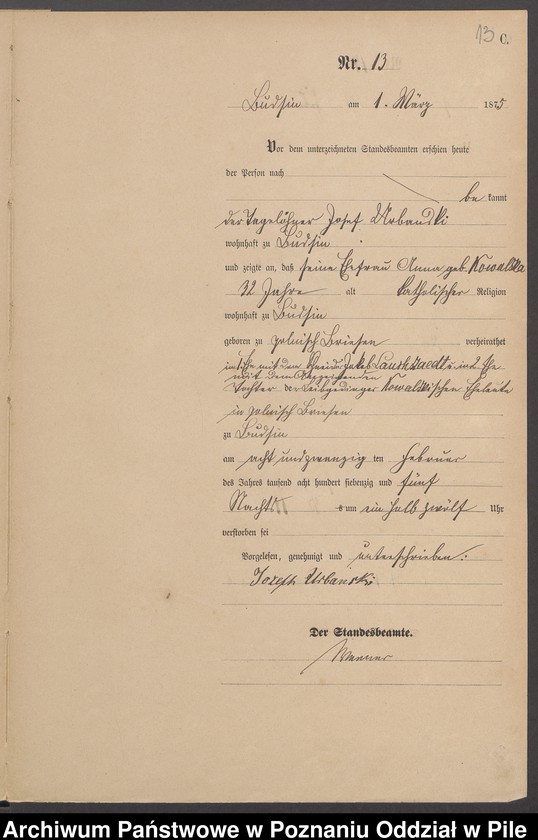 13 C.
Nr. 13
Budsin am 1. März 1875.
Vor dem unterzeichneten Standesbeamten erschien heute
der Person nach
bekannt
der Tagelöhner Josef Urbanski
wohnhaft zu Budsin
und zeigte an, daß seine Ehefrau Anna geb. Kowalska
32 Jahre alt katholischer Religion
wohnhaft zu Budsin
geboren zu polnisch Briesen verheirathet
mit dem Jakob u. in 2 Ehe
mit dem
Tochter der Kowalskischen Eheleute
in polnisch Briesen
zu Budsin
am acht und zwanzig ten Februar
des Jahres tausend acht hundert siebenzig und fünf
Nachts um ein halb zwölf Uhr
verstorben sei
Vorgelesen, genehmigt und unterschrieben:
Jozeph Urbanski
Der Standesbeamte.
Archiwum Państwowe w Poznaniu Oddział w Pile